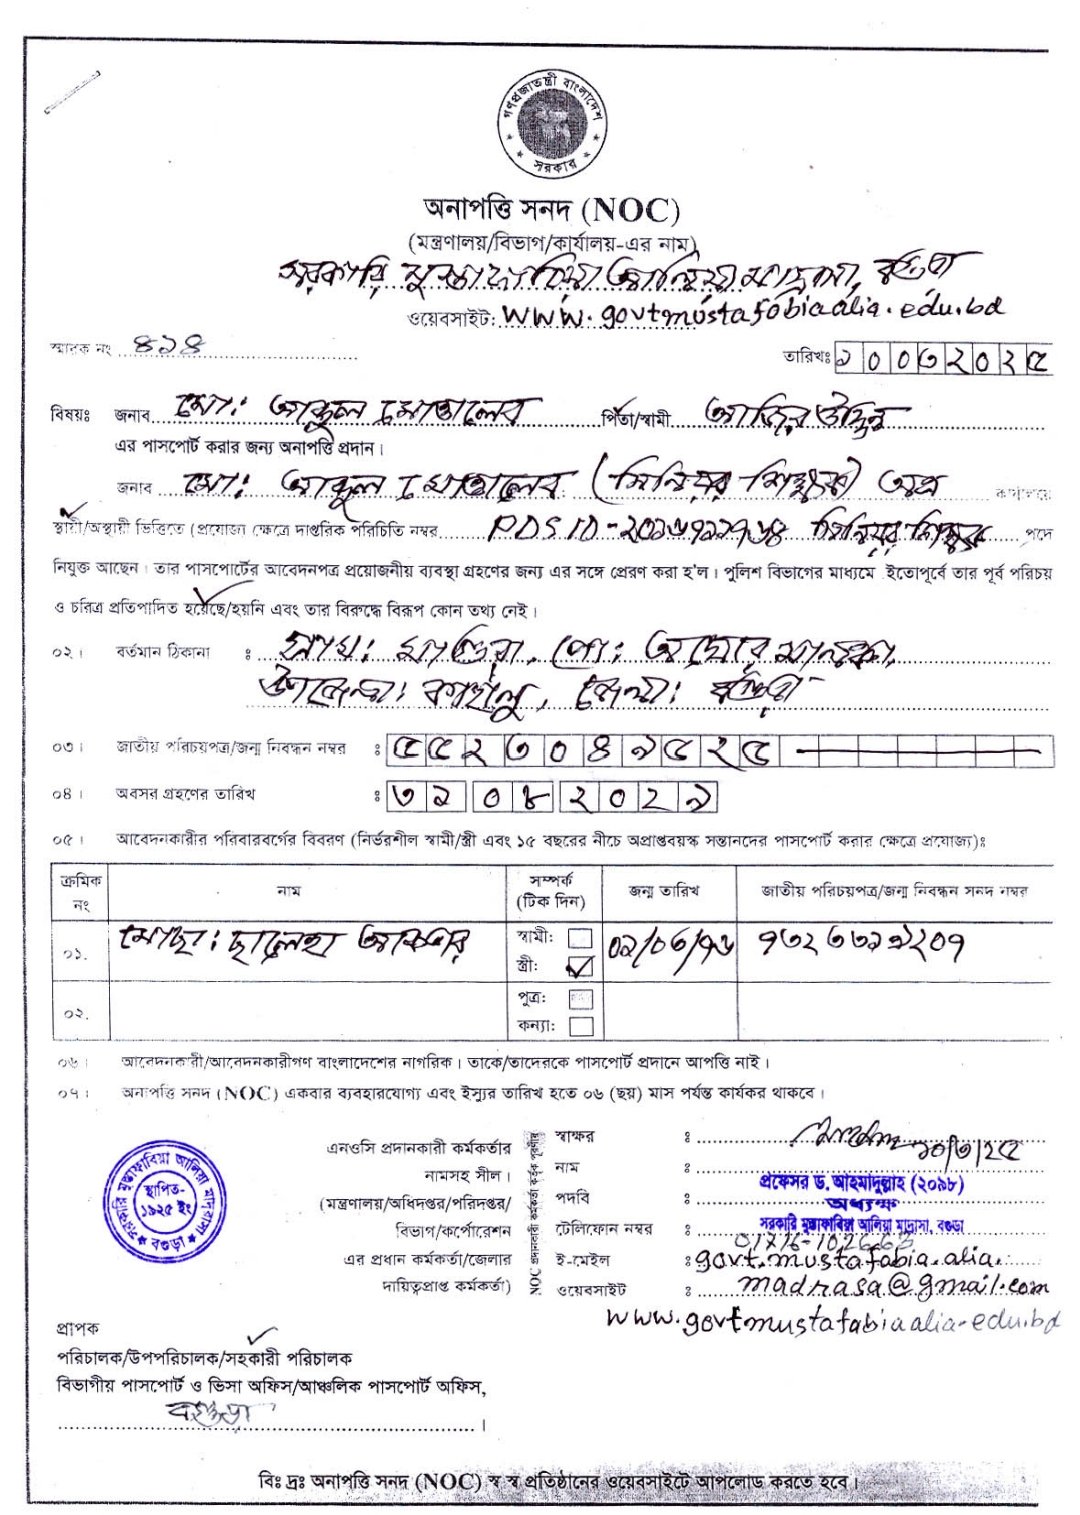 গণপ্রজাতন্ত্রী বাংলাদেশ
সরকার
অনাপত্তি সনদ (NOC)
(মন্ত্রণালয়/বিভাগ/কার্যালয়-এর নাম)
সরকারি মুস্তাফাবিয়া আলিয়া মাদ্রাসা, বগুড়া
ওয়েবসাইট: www.govtmustafabiaalia.edu.bd
স্মারক নং ৪১৪
তারিখঃ ১০০৩২০২৫
বিষয়ঃ জনাব মো: আব্দুল মোত্তালেব পিতা/স্বামী আজির উদ্দিন
এর পাসপোর্ট করার জন্য অনাপত্তি প্রদান।
জনাব মো: আব্দুল মোত্তালেব (সিনিয়র শিক্ষক) অত্র কার্যালয়ে
স্থায়ী/অস্থায়ী ভিত্তিতে (প্রযোজ্য ক্ষেত্রে দাপ্তরিক পরিচিতি নম্বর PDS ID-২০১৬৭১২৭৬৪ সিনিয়র শিক্ষক পদে
নিযুক্ত আছেন। তার পাসপোর্টের আবেদনপত্র প্রয়োজনীয় ব্যবস্থা গ্রহণের জন্য এর সঙ্গে প্রেরণ করা হ'ল। পুলিশ বিভাগের মাধ্যমে ইতোপূর্বে তার পূর্ব পরিচয়
ও চরিত্র প্রতিপাদিত হয়েছে/হয়নি এবং তার বিরুদ্ধে বিরূপ কোন তথ্য নেই।
০২। বর্তমান ঠিকানা : গ্রাম: মাগুরা, পো: অঘোর মালঞ্চা,
উপজেলা: কাহালু, জেলা: বগুড়া
০৩। জাতীয় পরিচয়পত্র/জন্ম নিবন্ধন নম্বর ঃ ৫৫২৩০৪৯৫২৫
০৪। অবসর গ্রহণের তারিখ ঃ ৩১ ০৮ ২০২৯
০৫। আবেদনকারীর পরিবারবর্গের বিবরণ (নির্ভরশীল স্বামী/স্ত্রী এবং ১৫ বছরের নীচে অপ্রাপ্তবয়স্ক সন্তানদের পাসপোর্ট করার ক্ষেত্রে প্রযোজ্য)ঃ
ক্রমিক নং নাম সম্পর্ক (টিক দিন) জন্ম তারিখ জাতীয় পরিচয়পত্র/জন্ম নিবন্ধন সনদ নম্বর
০১. মোছা: ছালেহা আকতার স্বামী: ০১/০৩/৭৬ ৭৩২৩৩১৯২০৭
স্ত্রী: ✓
০২. পুত্র:
কন্যা:
০৬। আবেদনকারী/আবেদনকারীগণ বাংলাদেশের নাগরিক। তাকে/তাদেরকে পাসপোর্ট প্রদানে আপত্তি নাই।
০৭। অনাপত্তি সনদ (NOC) একবার ব্যবহারযোগ্য এবং ইস্যুর তারিখ হতে ০৬ (ছয়) মাস পর্যন্ত কার্যকর থাকবে।
সরকারি মুস্তাফাবিয়া আলিয়া মাদ্রাসা
স্থাপিত-
১৯২৫ ইং
বগুড়া
এনওসি প্রদানকারী কর্মকর্তার
নামসহ সীল।
(মন্ত্রণালয়/অধিদপ্তর/পরিদপ্তর/
বিভাগ/কর্পোরেশন
এর প্রধান কর্মকর্তা/জেলার
দায়িত্বপ্রাপ্ত কর্মকর্তা)
NOC প্রদানকারী কর্মকর্তা কর্তৃক পূরণীয়
স্বাক্ষর ঃ ১০/৩/২৫
নাম ঃ প্রফেসর ড. আহমাদুল্লাহ (২০৯৮)
পদবি ঃ অধ্যক্ষ
সরকারি মুস্তাফাবিয়া আলিয়া মাদ্রাসা, বগুড়া
টেলিফোন নম্বর ঃ 01716-102663
ই-মেইল ঃ govt.mustafabia.alia.
madrasa@gmail.com
ওয়েবসাইট ঃ www.govtmustafabiaalia.edu.bd
প্রাপক
পরিচালক/উপপরিচালক/সহকারী পরিচালক
বিভাগীয় পাসপোর্ট ও ভিসা অফিস/আঞ্চলিক পাসপোর্ট অফিস,
বগুড়া।
বিঃ দ্রঃ অনাপত্তি সনদ (NOC) স্ব স্ব প্রতিষ্ঠানের ওয়েবসাইটে আপলোড করতে হবে।